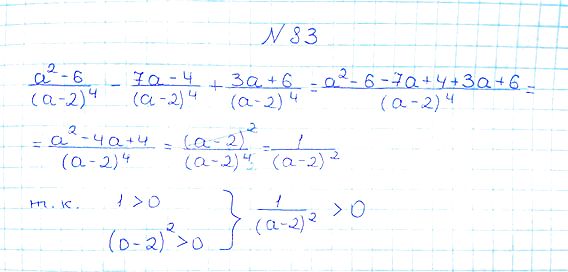 N 83
(a² - 6)/(a-2)⁴ - (7a - 4)/(a-2)⁴ + (3a + 6)/(a-2)⁴ = (a² - 6 - 7a + 4 + 3a + 6)/(a-2)⁴ =
= (a² - 4a + 4)/(a-2)⁴ = (a-2)²/(a-2)⁴ = 1/(a-2)²
т.к. 1 > 0
(a-2)² > 0 } 1/(a-2)² > 0